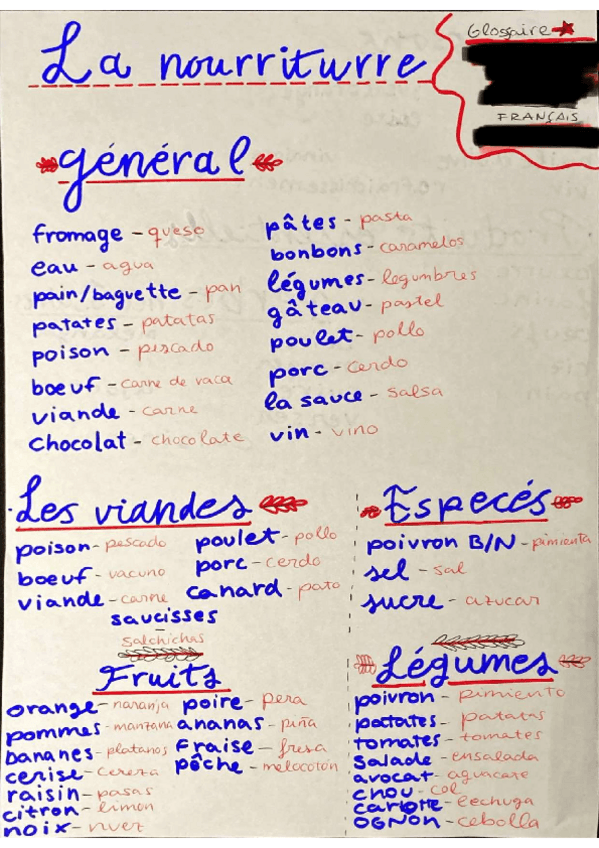 Glossaire
FRANÇAIS
La nourriturre
général
fromage - queso
eau - agua
pain/baguette - pan
patates - patatas
poison - pescado
boeuf - carne de vaca
viande - carne
Chocolat - chocolate
pâtes - pasta
bonbons - caramelos
légumes - legumbres
gâteau - pastel
poulet - pollo
porc - cerdo
la sauce - salsa
vin - vino
Les viandes
poison - pescado
boeuf - vacuno
viande - carne
poulet - pollo
porc - cerdo
canard - pato
saucisses
salchichas
Especés
poivron B/N - pimienta
sel - sal
sucre - azucar
Fruits
orange - naranja
pommes - manzana
bananes - platanos
cerise - cereza
raisin - pasas
citron - limon
noix - nuez
poire - pera
ananas - piña
fraise - fresa
pêche - melocotón
Légumes
poivron - pimiento
patates - patatas
tomates - tomates
Salade - ensalada
avocat - aguacate
chou - col
carotte - lechuga
OGNON - cebolla